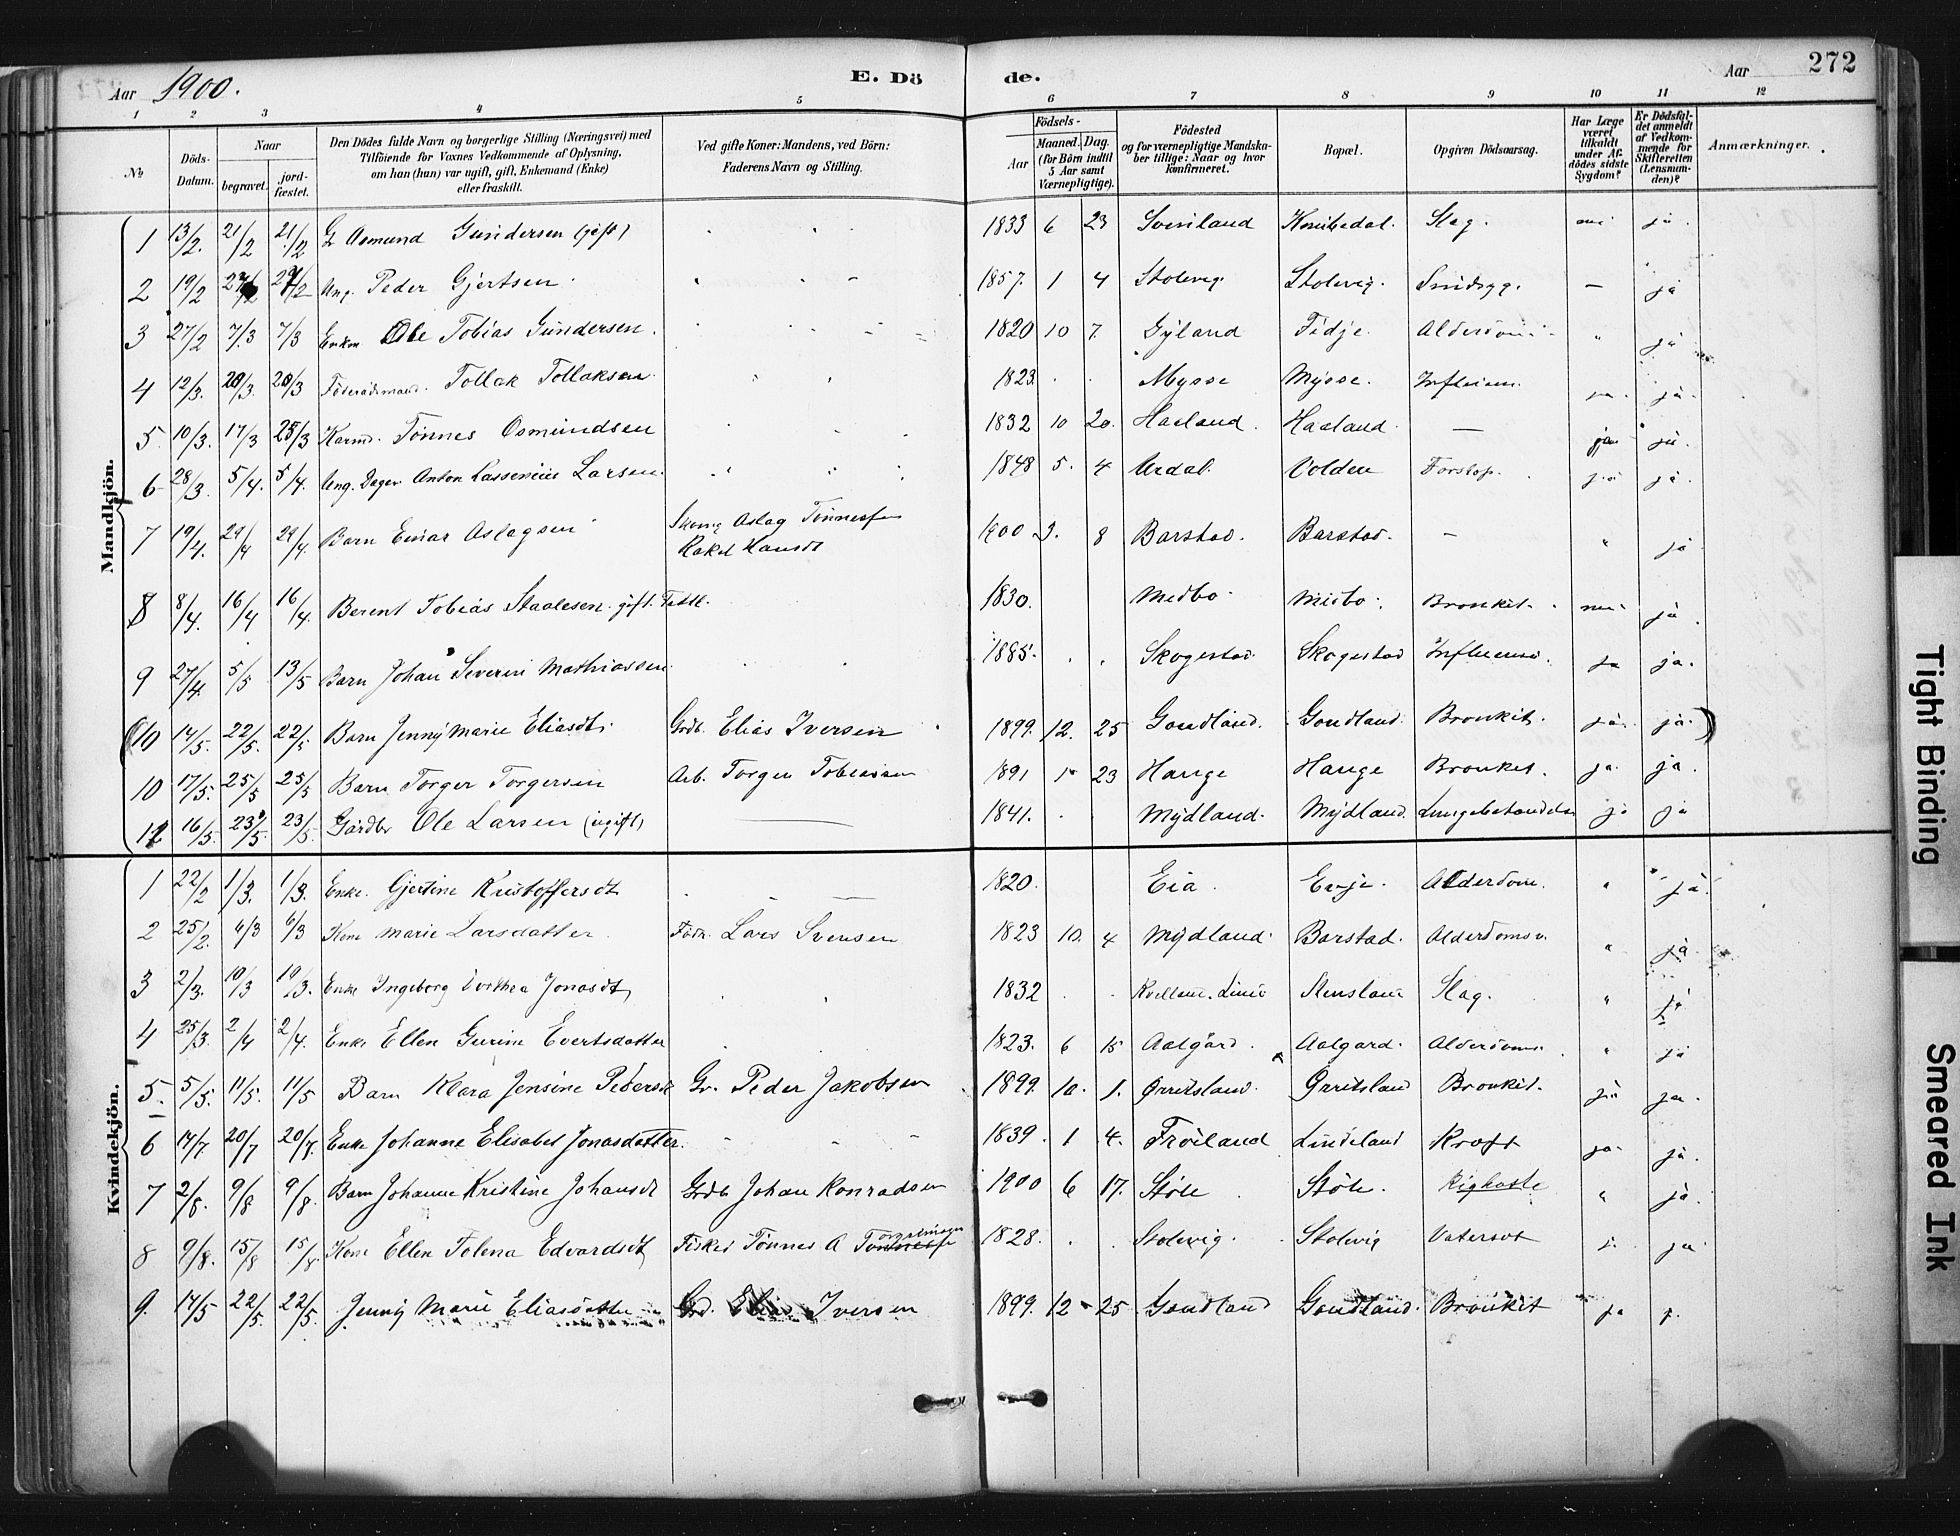 Aar 1900.
E. Dö
de.
Aar
272
1 2 3 4 5 6 7 8 9 10 11 12
№
Döds-Datum.
Naar
begravet.
jord-fæstet.
Den Dödes fulde Navn og borgerlige Stilling (Næringsvei) med
Tilföiende for Voxnes Vedkommende af Oplysning,
om han (hun) var ugift, gift, Enkemand (Enke)
eller fraskilt.
Ved gifte Koner: Mandens, ved Börn:
Faderens Navn og Stilling.
Födsels-
Aar
Maaned.
Dag.
(for Börn indtil
5 Aar samt
Værnepligtige).
Födested
og for værnepligtige Mandska-
ber tillige: Naar og hvor
konfirmeret.
Bopæl.
Opgiven Dödsaarsag.
Har Læge
været
tilkaldt
under Af-
dödes sidste
Sygdom?
Er Dödsfal-
det anmeldt
af Vedkom-
mende for
Skifteretten
(Lensman-
den)?
Anmærkninger.
Mandkjön.
1 13/2. 21/2 21/2 Asmund Gundersen (gift) 1833 6 23 Sveniland Slag. nei jå
2 19/2 Ung. Peder Gjertsen 1857. 1 4 Stolevig Stolevig. — jå
3 27/2 7/3 7/3 Enkm Ole Tobias Gundersen. 1820 10 7. Gyland Fidje. Alderdom " jå
4 12/3. 20/3. 20/3 Föderådsmand. Tollak Tollaksen. 1823. Mysse Mysse. ja. jå.
5 10/3. 17/3 25/3 Tönnes Osmundsen 1832 10 20. Haaland. Haaland. — jå. jå.
6 28/3. 5/4. 5/4. Ung. Anton Larsen. 1848 5. 4 Urdal Volden jå jå.
7 19/4. 29/4 29/4. Barn Einar Aslagsen Aslag Tönnesen 1900 3. 8 Barstad. Barstad. — " jå
Rakel Hansdt
8 8/4. 16/4 16/4. Berent Tobias Staalesen. gift. 1830. Medbo Midbo. Bronkit. nei jå
9 27/4. 5/5 13/5 Barn Johan Severin Mathiassen 1885. Skogestad Skogestad Influensa. ja ja.
(10 14/5. 22/5. 22/5 Barn Jenny Marie Eliasdt. Grdb. Elias Iversen 1899. 12. 25 Gondland. Gondland. Bronkit. ja. jå.)
10 17/5. 25/5 25/5 Barn Torger Torgersen Arb. Torger Tobiassen 1891 1 23 Hauge Hauge Bronkit. ja. ja.
12 16/5. 23/5 23/5. Gårdbr Ole Larsen (ugift) — 1841. Mydland. Mydland. Lungebetændelse jå jå
Kvindekjön.
1 22/2 1/3. 1/3. Enke. Gjertine Kristoffersdt 1820. Eia. Eije. Alderdom. " jå.
2 25/2. 6/3 6/3 Kone Marie Larsdatter Lars Svensen 1823 10. 4 Mydland. Barstad. Alderdoms. " jå.
3 2/3. 10/3 10/3. Enke Ingeborg Dorthea Jonasdt 1832 Slag. " jå
4 25/3. 2/4 2/4. Enke Ellen Gurine Evertsdatter 1823. 6 15 Aalgård. Aalgard. Alderdoms " jå
5. 5/5. 11/5. 11/5 Barn Klara Jensine Pedersdt Gr. Peder Jakobsen 1899. 10. 1. Örritsland. Örritsland Bronkit. jå ja.
6 14/7. 20/7 20/7. Enke Johanne Elisabet Jonasdatter 1839. 1 4. Fröiland Lindeland Kræft ja. jå.
7 2/8. 9/8 9/8. Barn Johanne Kristine Johansdt Grdb Johan Konradsen 1900 6 17. Stöle Stöle. Kighoste " jå
8 9/8. 15/8 15/8. Kone Ellen Tolena Edvardsdt Fisker Tönnes A 1828. Stolevig. Stolevig Vatersot j. ja
9. 14/5 22/5. 22/5. Jenny Marie Eliasdatter Grd. Elias Iversen 1899. 12 25 Gondland Gondland. Bronkit ja j.
Tight Binding
Smeared Ink